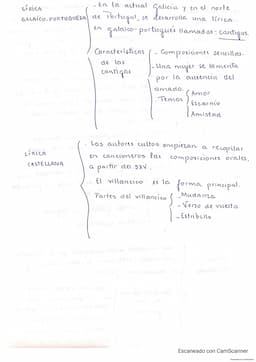 LÍRICA
GALAICO-PORTUGUESA
- En la actual Galicia y en el norte
de Portugal, se desarrolla una lírica
en galaico-portugués llamadas: cantigas.
Características
de las
cantigas
- Composiciones sencillas.
- Una mujer se lamenta
por la ausencia del
amado.
- Temas
Amor
Escarnio
Amistad
LÍRICA
CASTELLANA
- Los autores cultos empiezan a recopilar
en cancioneros las composiciones orales,
a partir do SXV.
- El villancico es la forma principal.
Partes del villancico
- Mudanza
- Verso de vuelta
- Estribillo
Escaneado con CamScanner